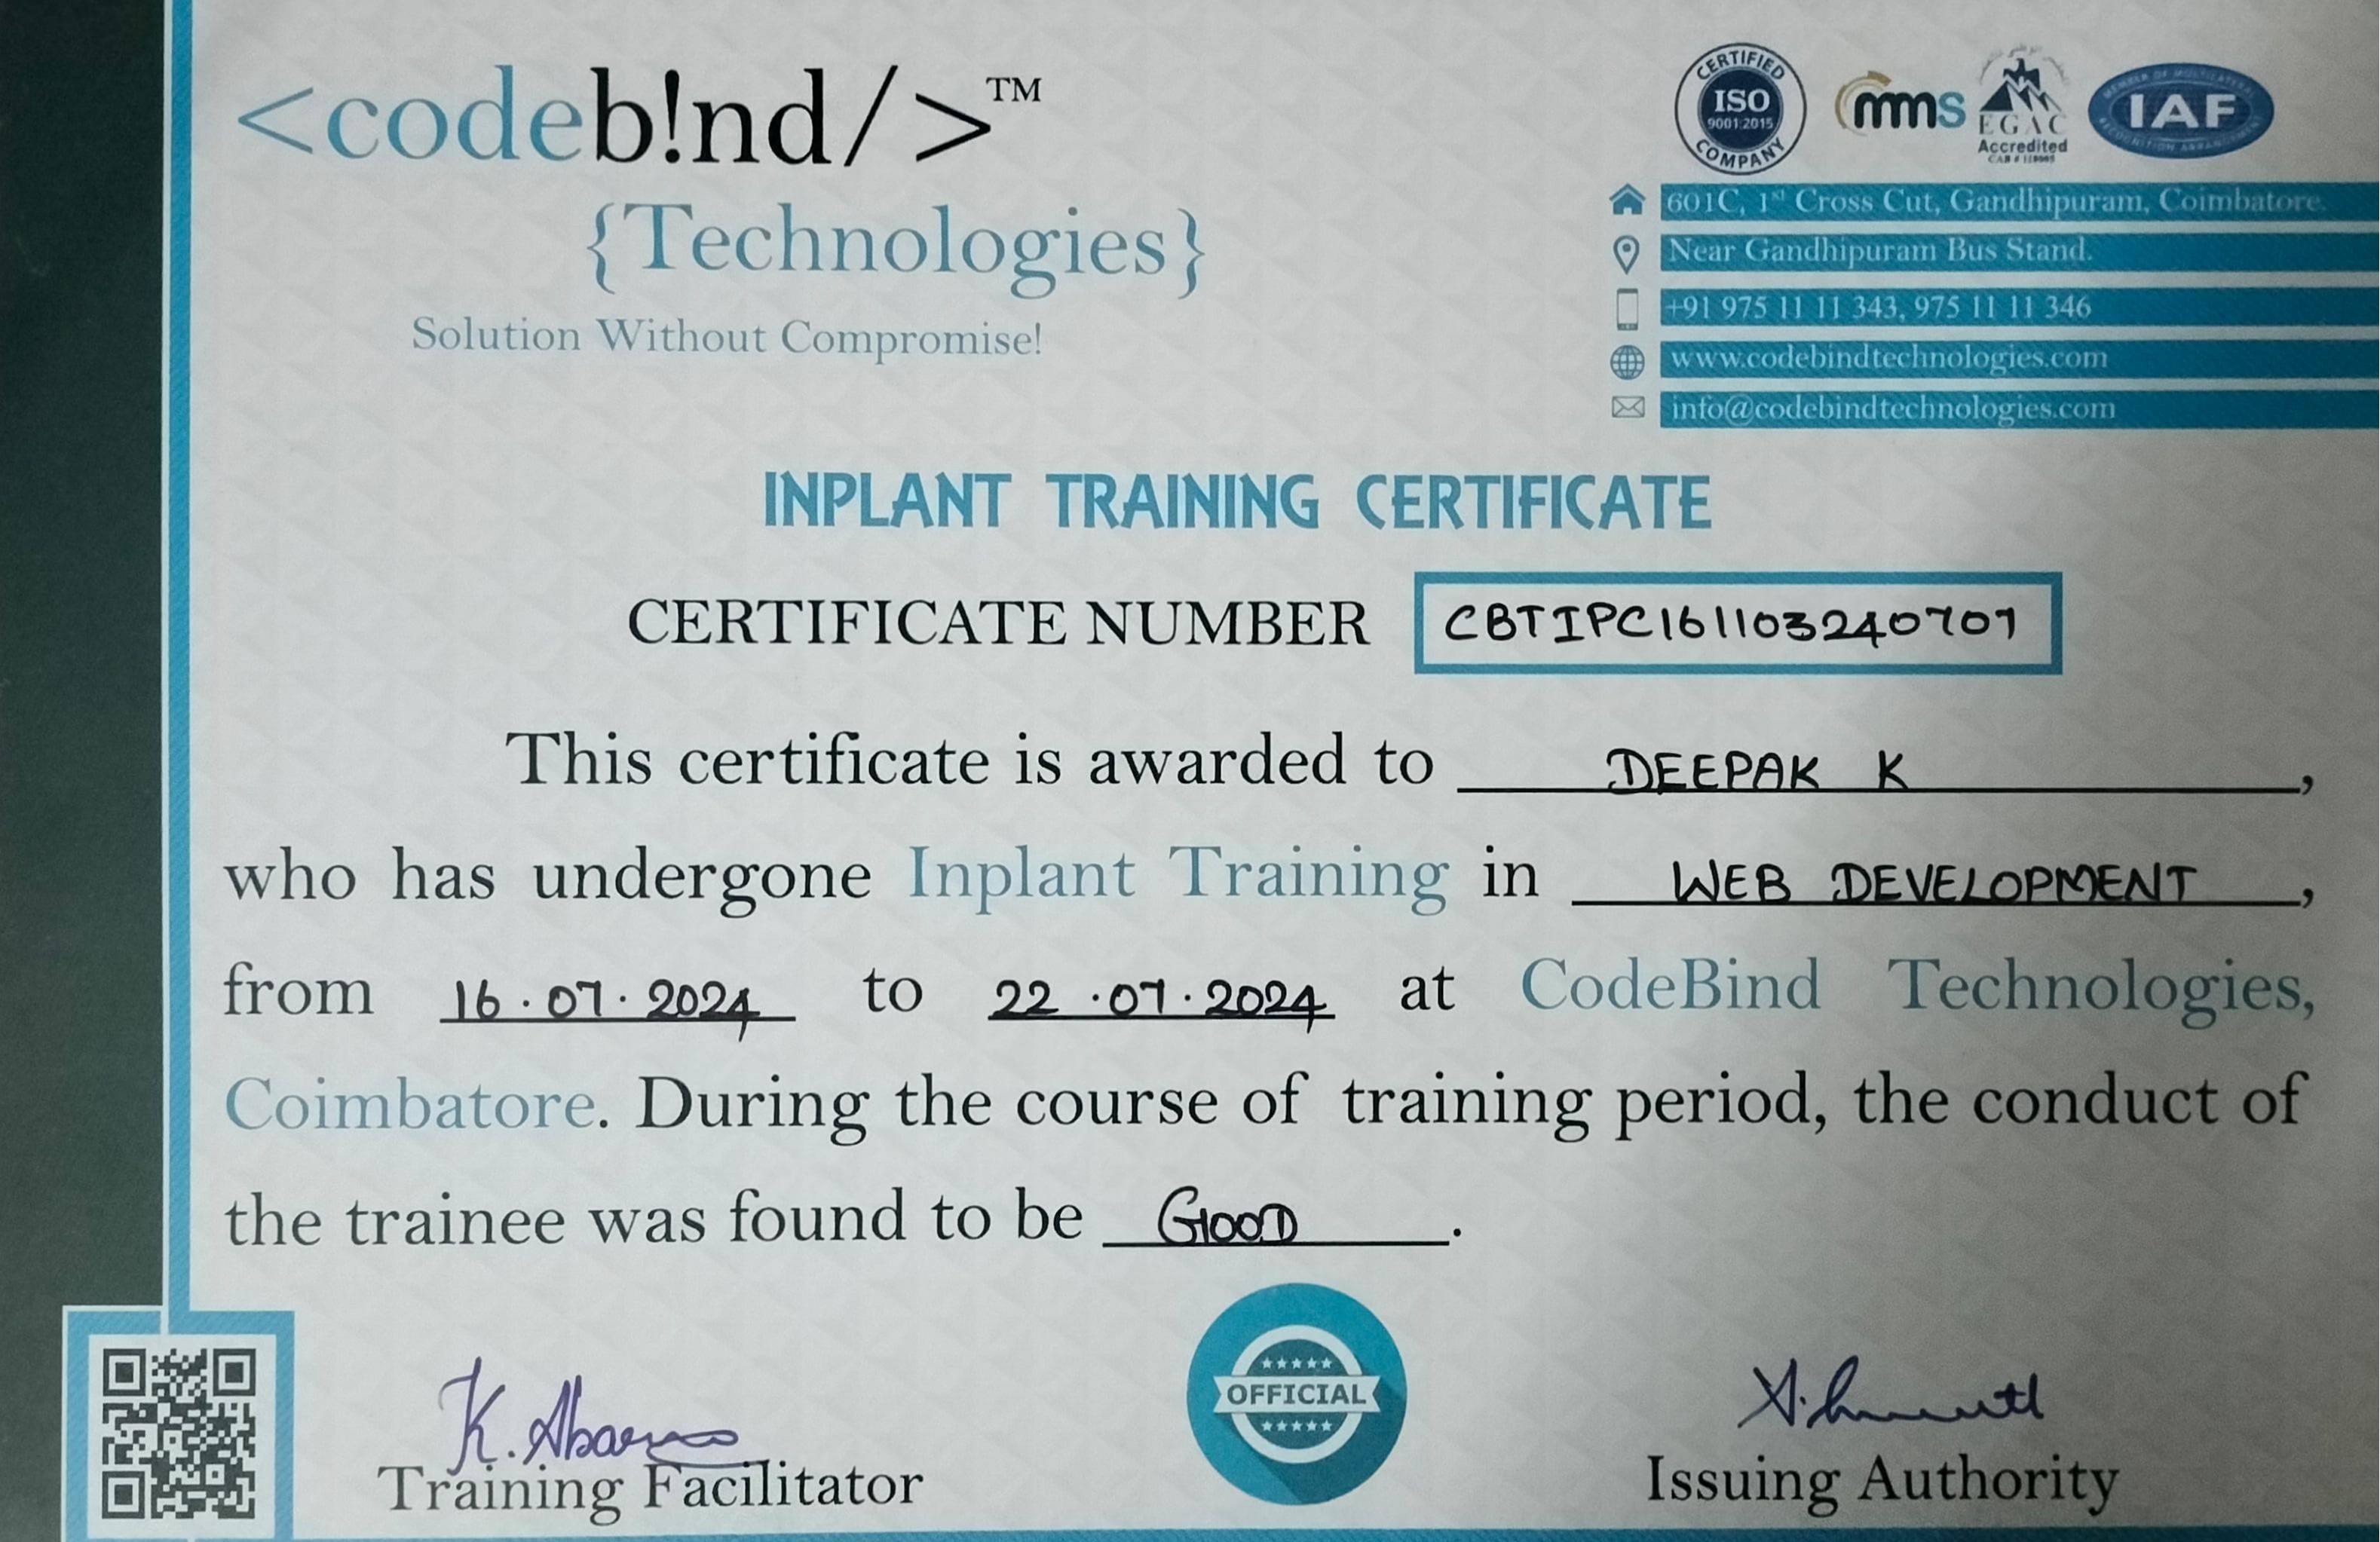 <codeb!nd/>™
{Technologies}
Solution Without Compromise!
CERTIFIED
ISO
9001:2015
COMPANY
mms
EGAC
Accredited
IAF
601C, 1st Cross Cut, Gandhipuram, Coimbatore.
Near Gandhipuram Bus Stand.
+91 975 11 11 343, 975 11 11 346
www.codebindtechnologies.com
info@codebindtechnologies.com
INPLANT TRAINING CERTIFICATE
CERTIFICATE NUMBER CBTIPC161103240707
This certificate is awarded to DEEPAK K,
who has undergone Inplant Training in WEB DEVELOPMENT,
from 16.07.2024 to 22.07.2024 at CodeBind Technologies,
Coimbatore. During the course of training period, the conduct of
the trainee was found to be GOOD.
K. Abarna
OFFICIAL
Training Facilitator
Issuing Authority